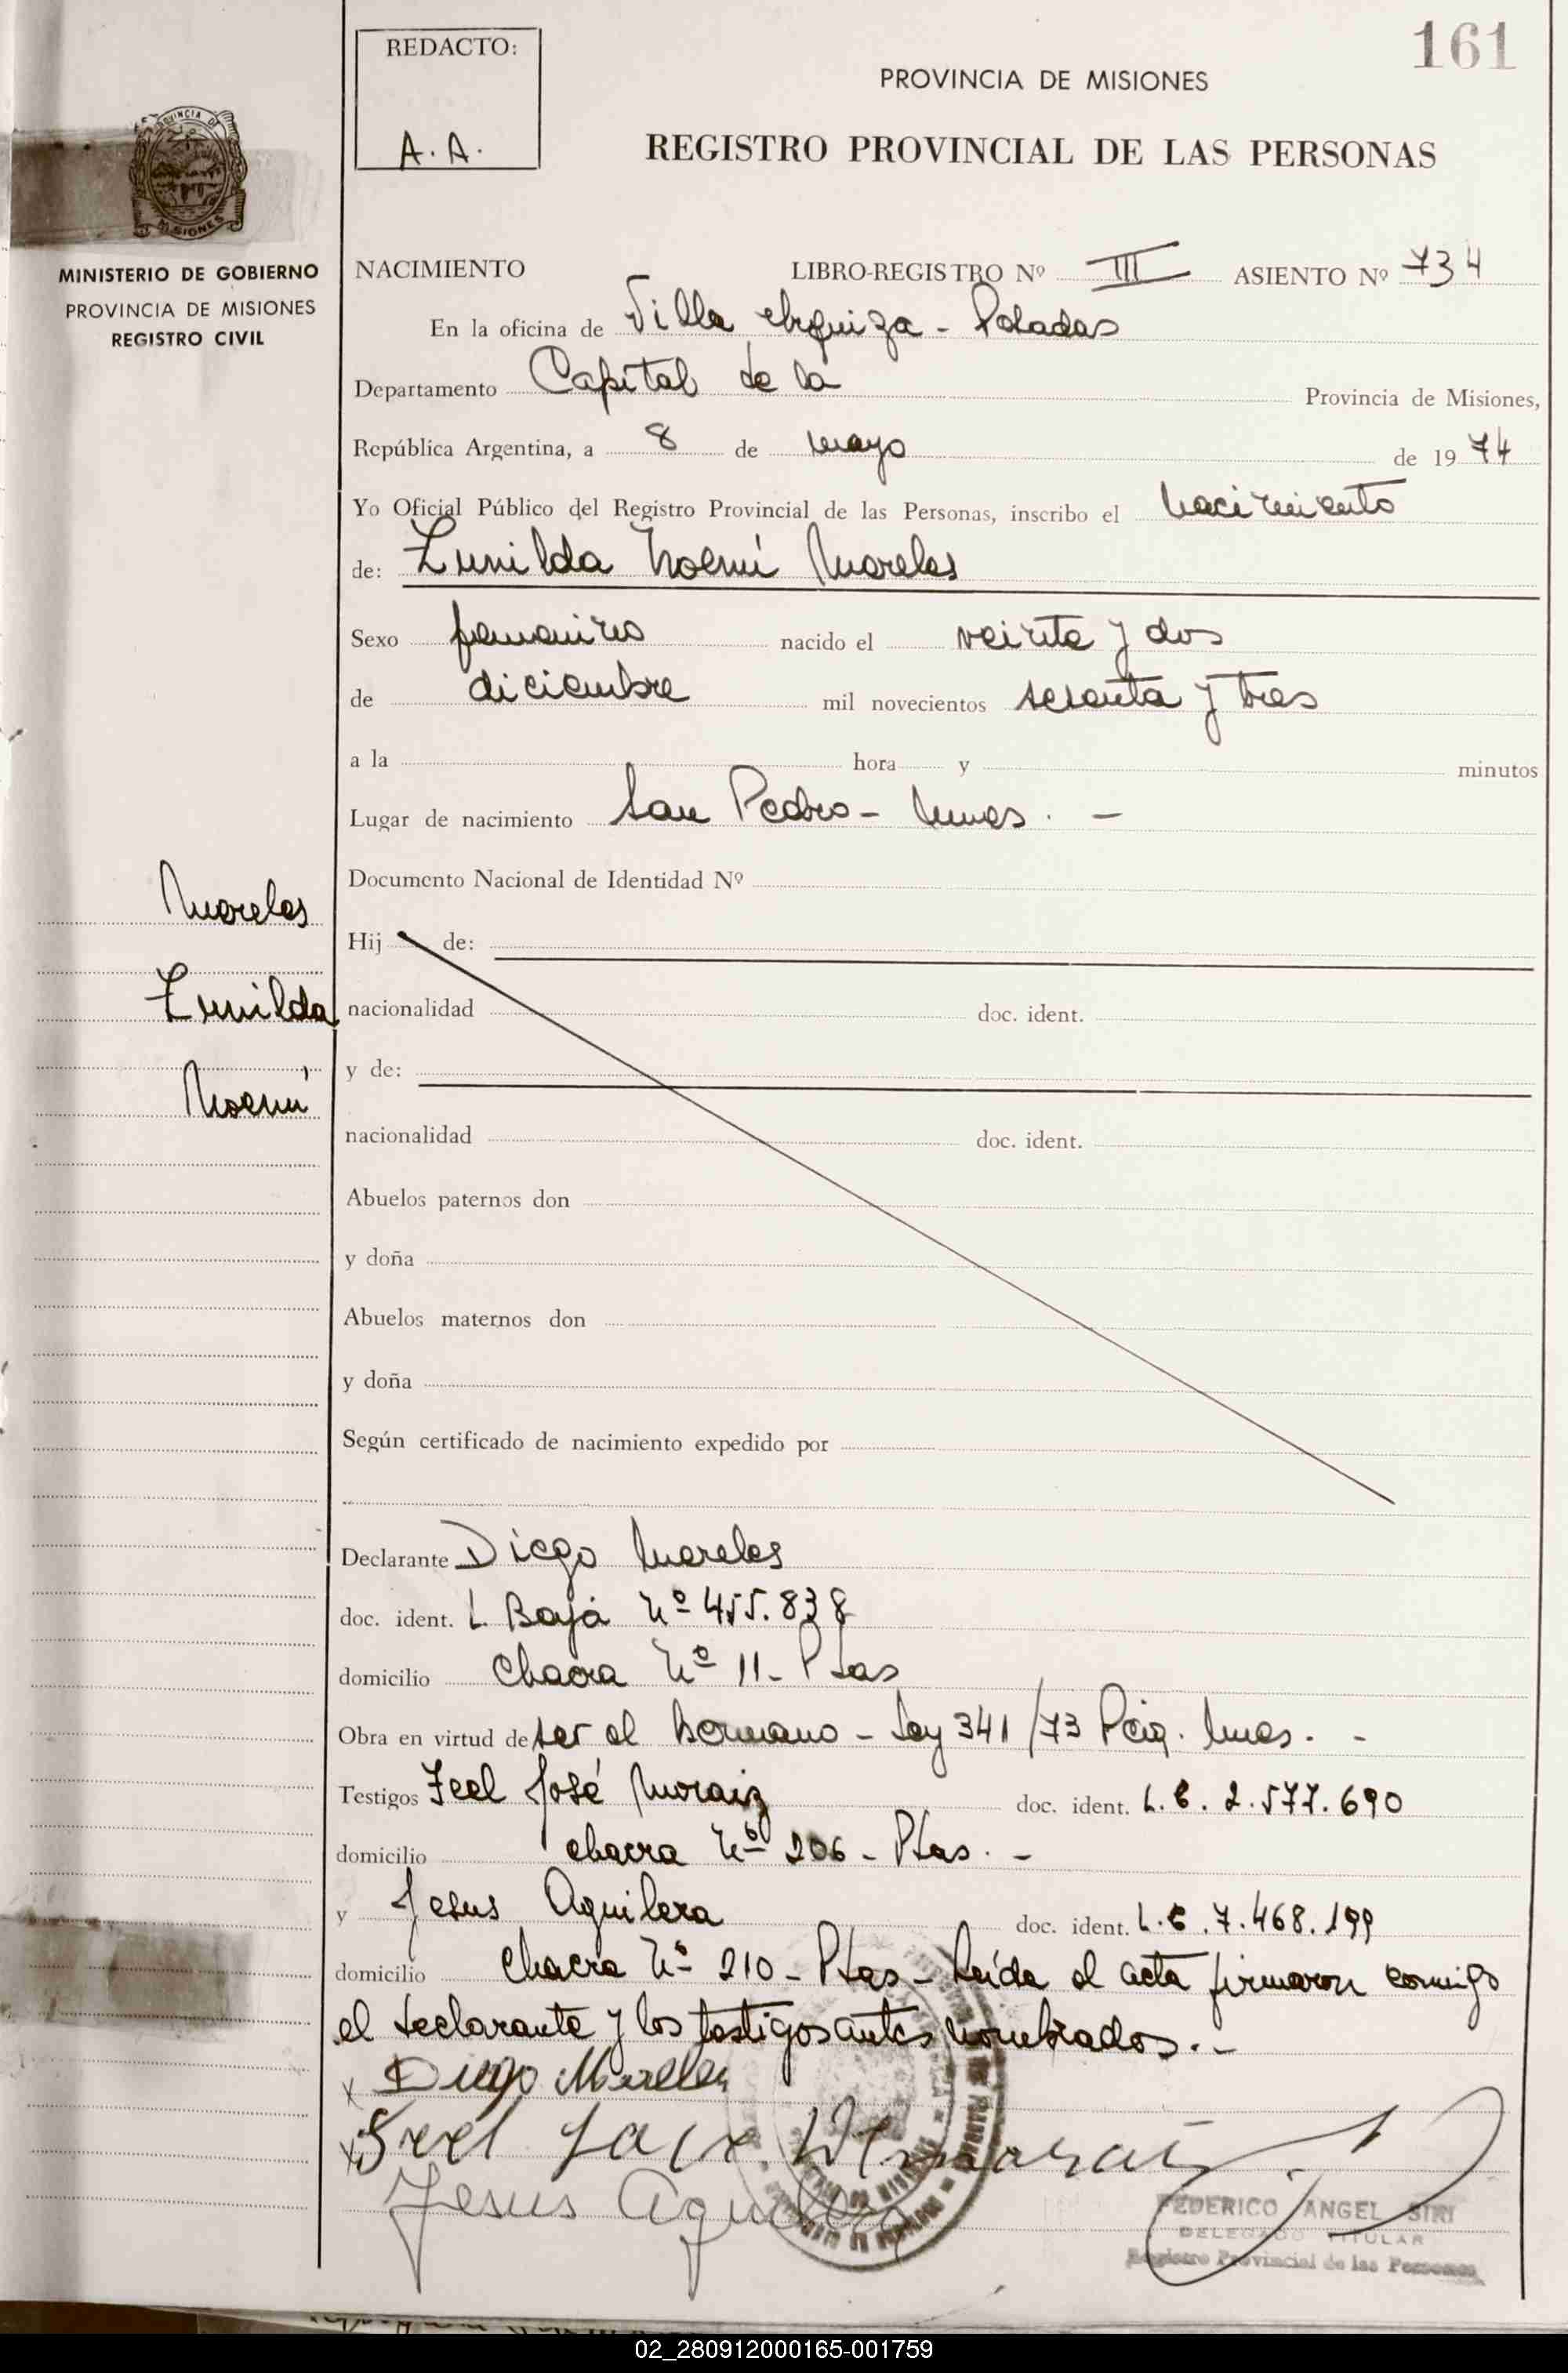 161
REDACTO:
A. A.
PROVINCIA DE MISIONES
REGISTRO PROVINCIAL DE LAS PERSONAS
PROVINCIA DE
MISIONES
MINISTERIO DE GOBIERNO
PROVINCIA DE MISIONES
REGISTRO CIVIL
NACIMIENTO LIBRO-REGISTRO Nº III ASIENTO Nº 734
En la oficina de Villa Urquiza - Posadas
Departamento Capital de la Provincia de Misiones,
República Argentina, a 8 de mayo de 1974
Yo Oficial Público del Registro Provincial de las Personas, inscribo el nacimiento
de: Zunilda Noemí Moreles
Sexo femenino nacido el veinte y dos
de diciembre mil novecientos sesenta y tres
a la hora y minutos
Lugar de nacimiento San Pedro - Mnes. -
Documento Nacional de Identidad Nº
Moreles
Hij de:
Zunilda
nacionalidad doc. ident.
y de:
Noemí
nacionalidad doc. ident.
Abuelos paternos don
y doña
Abuelos maternos don
y doña
Según certificado de nacimiento expedido por
Declarante Diego Moreles
doc. ident. L. Baja Nº 455.838
domicilio Chacra Nº 11 - Pdas
Obra en virtud de ser el hermano - Ley 341/73 Pcia. Mnes. -
Testigos José Moraiz doc. ident. L.E. 2.577.690
domicilio chacra Nº 206 - Pdas. -
y Jesus Aquilera doc. ident. L.E. 7.468.199
domicilio Chacra Nº 210 - Pdas - Leída el acta firmaron conmigo
el declarante y los testigos antes nombrados. -
x Diego Morelles
Jesus Aquilera
FEDERICO ANGEL SIRI
DELEGADO TITULAR
Registro Provincial de las Personas
02_280912000165-001759